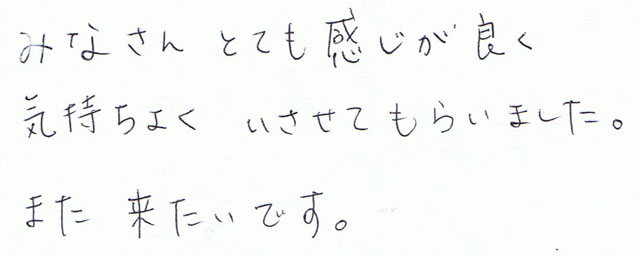 みなさん とても感じが良く
気持ちよく いさせてもらいました。
また 来たいです。